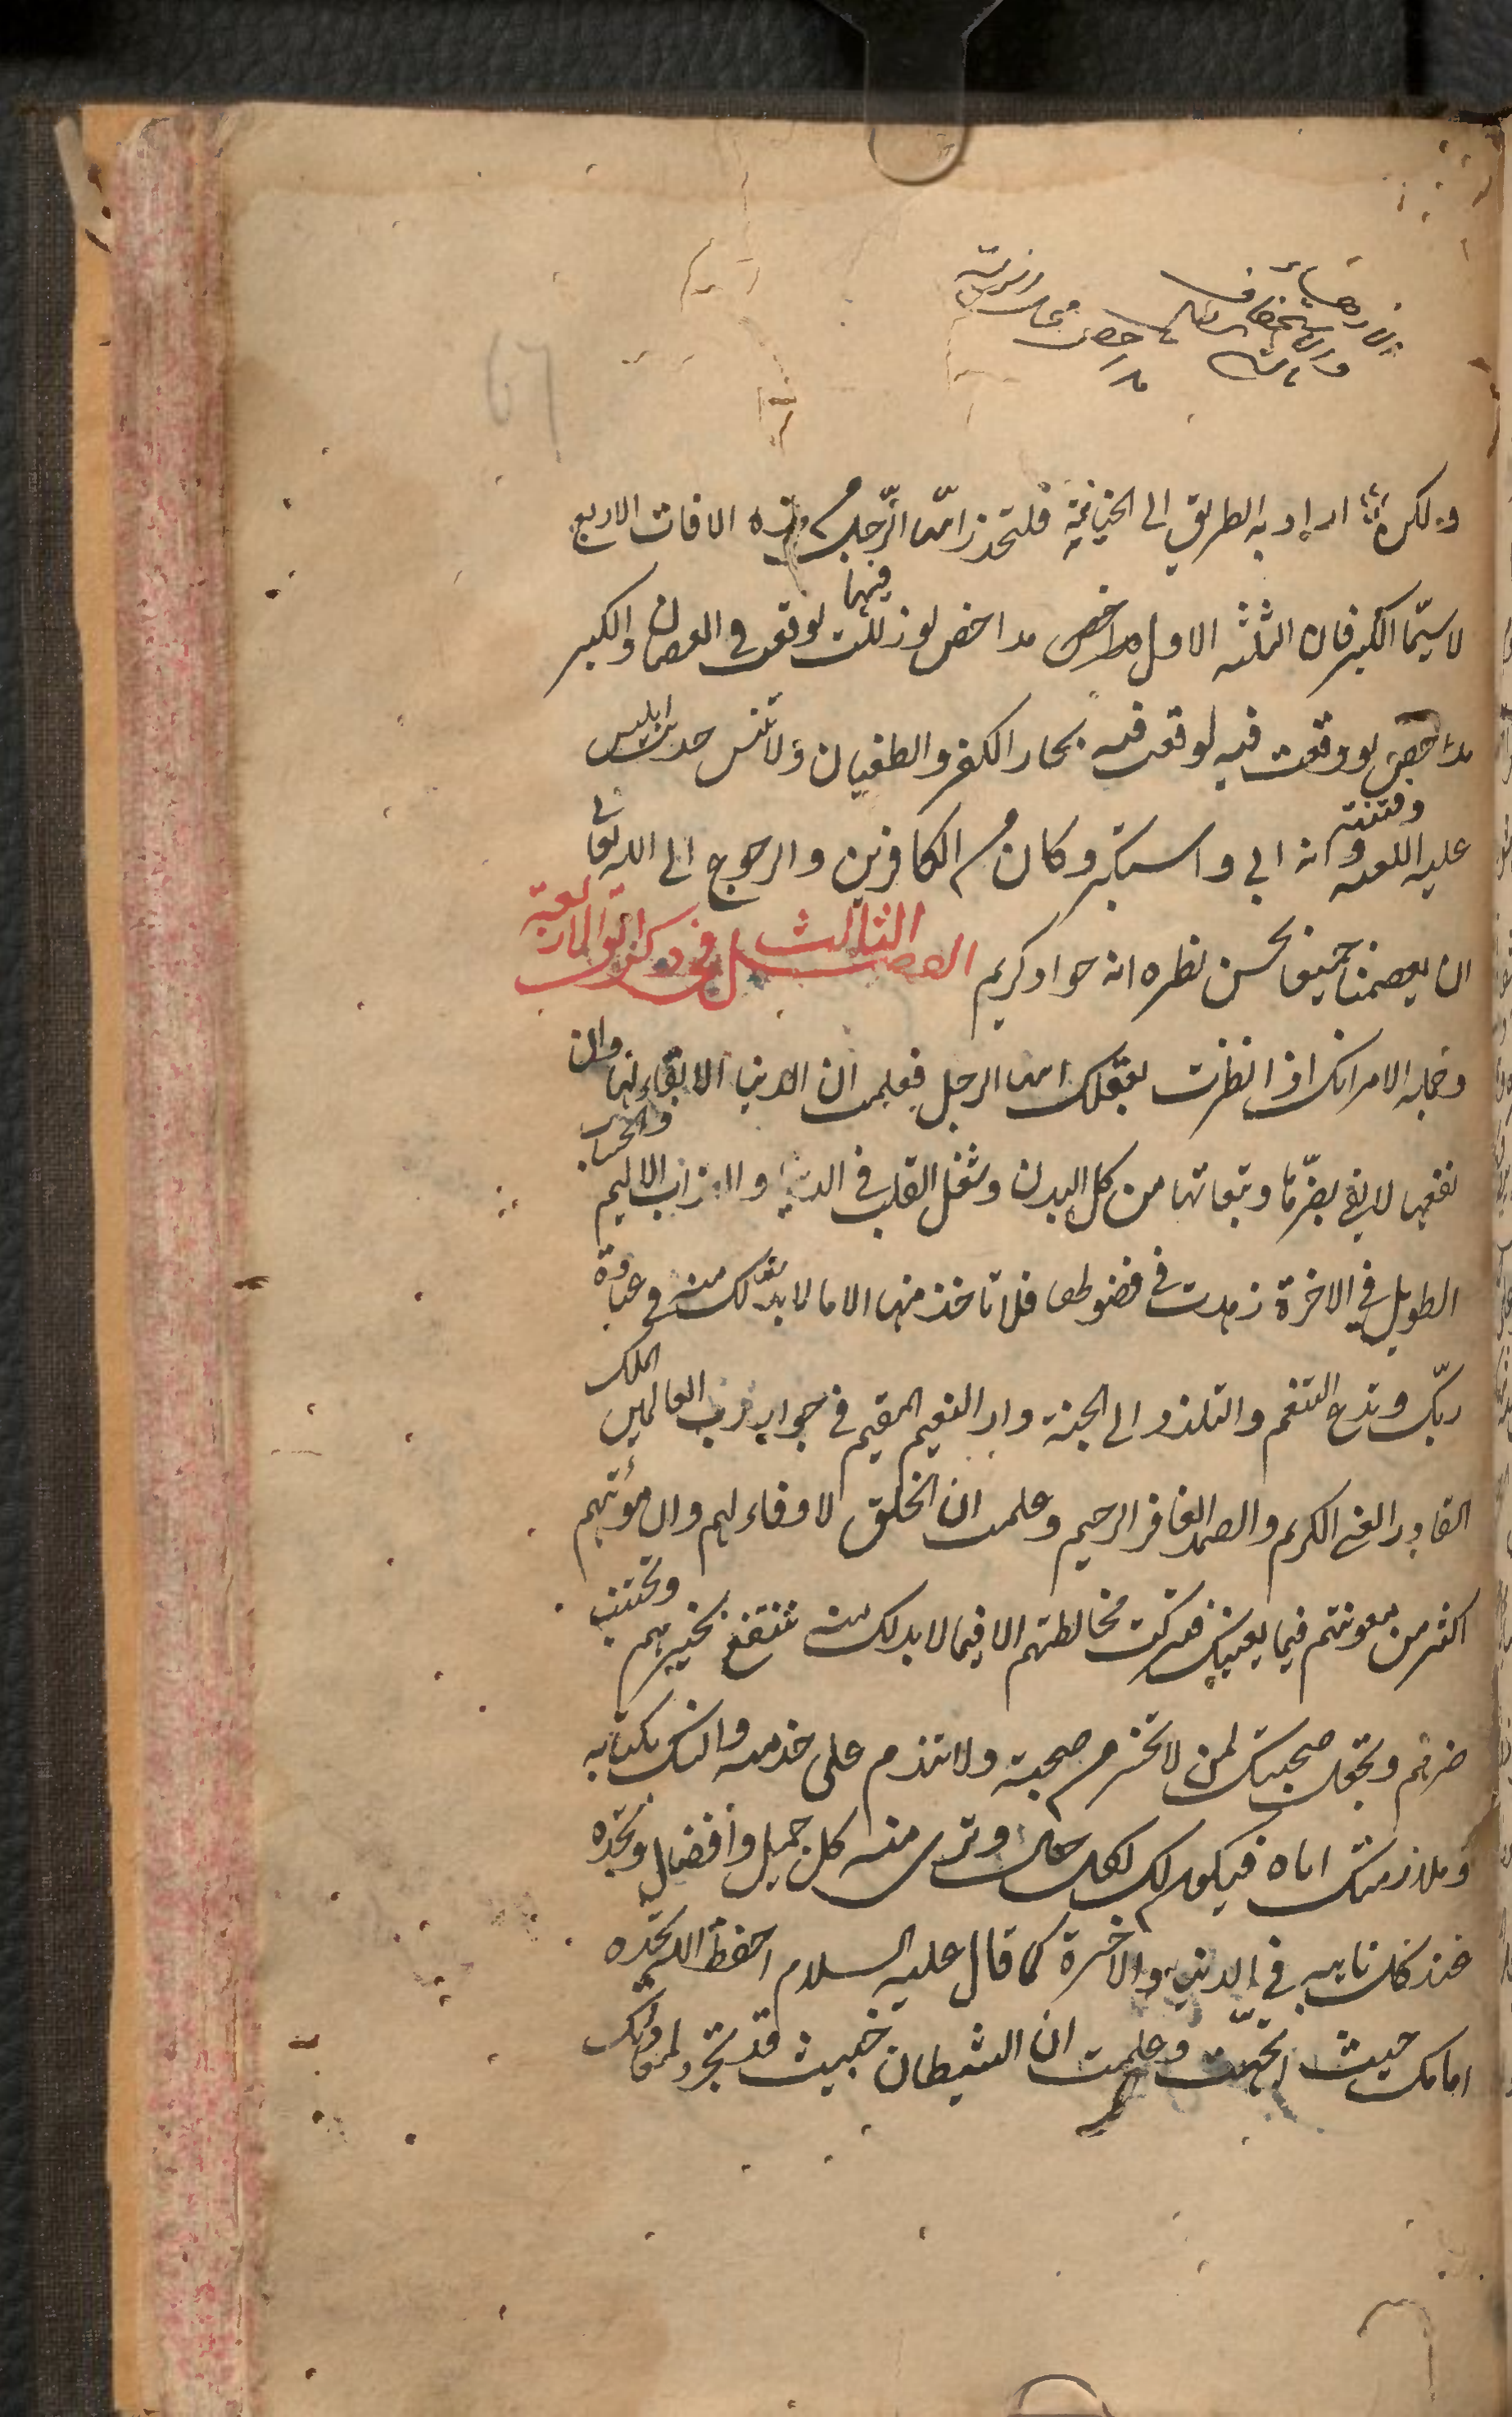 67
ولكن اراد به الطريق الى الخيانة فلتحذر ايها الرجل من هذه الافات الاربع
لا سيما الكبر فان الثلثة الاول مداحض لو زللت فيها لوقعت في العصيان والكبر
مداحض لو وقعت فيه لوقعت فيه بحار الكفر والطغيان ولا تنس حديث ابليس
عليه اللعنة وفتنته وانه ابى واستكبر وكان من الكافرين والرجوع الى الله تعالى
ان يعصمنا جميعا بحسن نظره انه جواد كريم الفصل الثالث في ذكر العوائق الاربعة
وجملة الامر انك اذا نظرت بعقلك ايها الرجل فعلمت ان الدنيا لا بقاء لها وان
نفعها لا يفي بضرها وتبعاتها من كد البدن وشغل القلب في الدنيا والعذاب الاليم والحساب
الطويل في الاخرة زهدت في فضولها فلا تاخذ منها الا ما لا بد لك منه في عبادة
ربك وتدع التنعم والتلذذ الى الجنة دار النعيم المقيم في جوار رب العالمين الملك
القادر الغني الكريم والصمد الغافر الرحيم وعلمت ان الخلق لا وفاء لهم وان مؤنتهم
اكثر من معونتهم فيما يعنيك فتركت مخالطتهم الا فيما لا بد لك منه تنتفع بخيرهم وتجتنب
ضرهم وتجعل صحبتك لمن لا تخسر من صحبته ولا تندم على خدمته وانسك بكتابه
وملازمتك اياه فيكون لك لكل حال وترى منه كل جميل وافضال وتجده
عند كل نايبة في الدنيا والاخرة كما قال عليه السلام احفظ الله تجده
امامك حيث اتجهت وعلمت ان الشيطان خبيث قد تجرد لمعاداتك